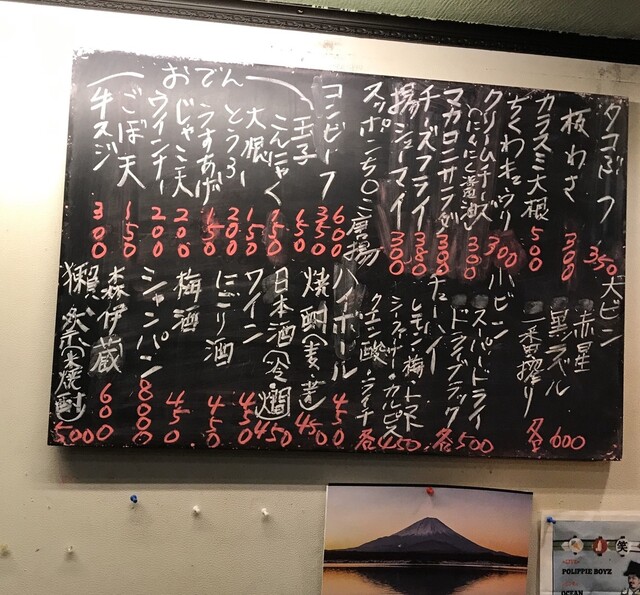 タコぶつ 350
板わさ 300
カラスミ大根 500
ちくわキュウリ 300
クリームチーズ
(にんにく醤油) 300
マカロニサラダ 300
チーズフライ 380
揚シューマイ 300
唐揚
コンビーフ 600
おでん
玉子 150
こんにゃく 150
大根 150
とうふ 200
うすあげ 150
じゃこ天 200
ウインナー 200
ごぼ天 150
牛スジ 300
大ビン
赤星
黒ラベル
一番搾り
各600
小ビン
スーパードライ
ドライブラック
各500
チューハイ
レモン・梅・トマト
シークァーサー・カルピス
クエン酸・ライチ
各450
ハイボール 450
焼酎(麦・芋) 450
日本酒(冷・燗) 450
ワイン 450
にごり酒 450
梅酒 450
シャンパン 8000
森伊蔵 600
獺祭(米焼酎) 5000
笑
POLIPPIE BOYZ
OCEAN